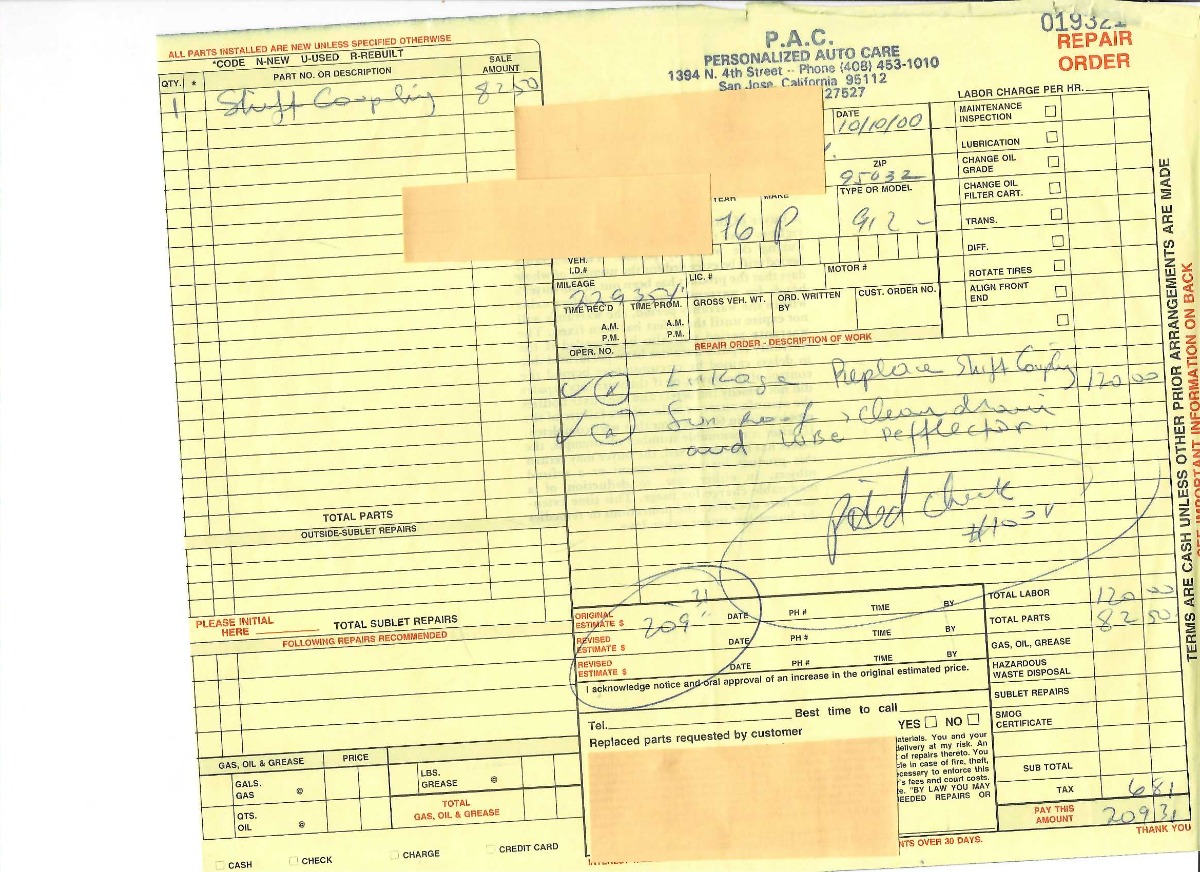 019321
P.A.C.
PERSONALIZED AUTO CARE
1394 N. 4th Street -- Phone (408) 453-1010
San Jose, California 95112
27527
REPAIR
ORDER
ALL PARTS INSTALLED ARE NEW UNLESS SPECIFIED OTHERWISE
*CODE N-NEW U-USED R-REBUILT
QTY. * PART NO. OR DESCRIPTION SALE AMOUNT
1 Shift Coupling 82 50
TOTAL PARTS
OUTSIDE-SUBLET REPAIRS
PLEASE INITIAL HERE TOTAL SUBLET REPAIRS
FOLLOWING REPAIRS RECOMMENDED
GAS, OIL & GREASE PRICE
GALS. GAS @
QTS. OIL @
LBS. GREASE @
TOTAL
GAS, OIL & GREASE
CASH CHECK CHARGE CREDIT CARD
DATE
10/10/00
ZIP
95032
YEAR MAKE TYPE OR MODEL
76 P 912
VEH. I.D.#
MILEAGE LIC. # MOTOR #
TIME REC'D TIME PROM. GROSS VEH. WT. ORD. WRITTEN BY CUST. ORDER NO.
A.M. A.M.
P.M. P.M.
OPER. NO. REPAIR ORDER - DESCRIPTION OF WORK
Linkage Replace Shift Coupling 120 00
Sun Roof > clean drain
and lube
paid check
LABOR CHARGE PER HR.
MAINTENANCE INSPECTION
LUBRICATION
CHANGE OIL GRADE
CHANGE OIL FILTER CART.
TRANS.
DIFF.
ROTATE TIRES
ALIGN FRONT END
TERMS ARE CASH UNLESS OTHER PRIOR ARRANGEMENTS ARE MADE
SEE IMPORTANT INFORMATION ON BACK
ORIGINAL ESTIMATE $ 209 31 DATE PH # TIME BY
REVISED ESTIMATE $ DATE PH # TIME BY
REVISED ESTIMATE $ DATE PH # TIME BY
I acknowledge notice and oral approval of an increase in the original estimated price.
Tel. Best time to call
Replaced parts requested by customer YES NO
aterials. You and your
delivery at my risk. An
of repairs thereto. You
cle in case of fire, theft,
ecessary to enforce this
's fees and court costs.
e. "BY LAW YOU MAY
NEEDED REPAIRS OR
NTS OVER 30 DAYS.
TOTAL LABOR 120 00
TOTAL PARTS 82 50
GAS, OIL, GREASE
HAZARDOUS WASTE DISPOSAL
SUBLET REPAIRS
SMOG CERTIFICATE
SUB TOTAL
TAX 6 81
PAY THIS AMOUNT 209 31
THANK YOU